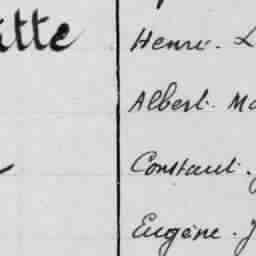 itte
Henri. L
Albert. Ma
Constant. J
Eugène. J